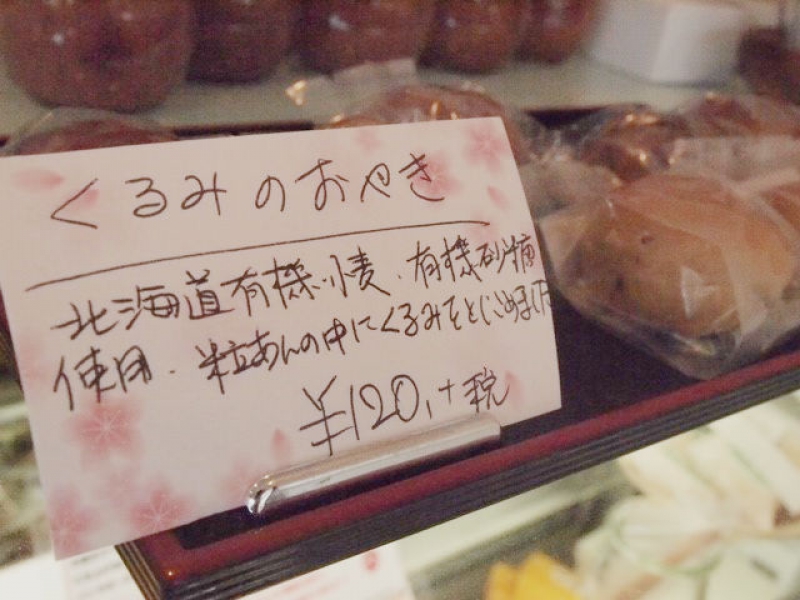 くるみのおやき
北海道有機小麦、有機砂糖
使用、粒あんの中にくるみをとじこめました
¥120,+税